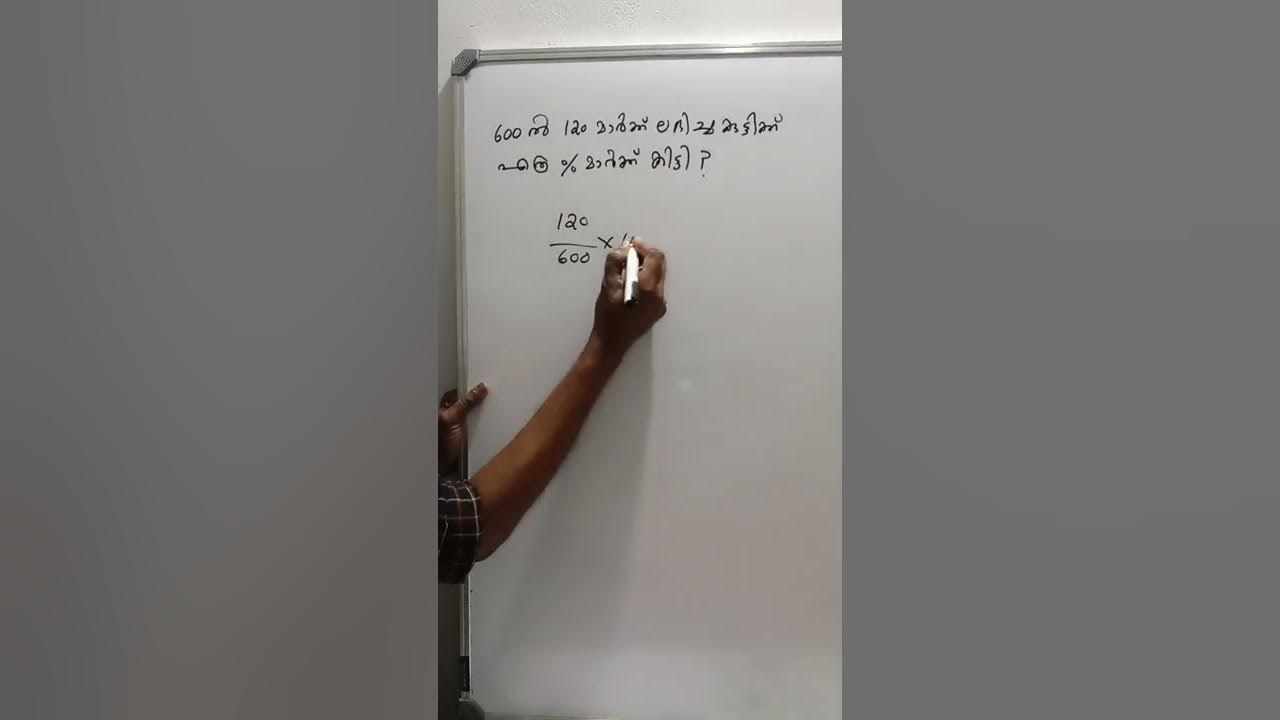 600 ൽ 120 മാർക്ക് ലഭിച്ച കുട്ടിക്ക്
എത്ര % മാർക്ക് കിട്ടി ?
120
600 ×